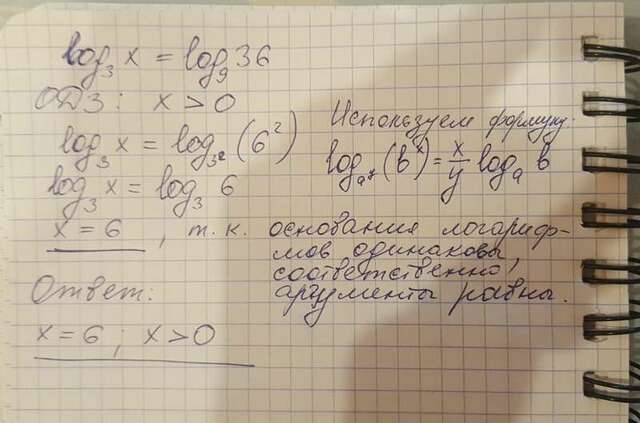 log₃ x = log₉ 36
ОДЗ: x > 0
log₃ x = log₃² (6²)
log₃ x = log₃ 6
x = 6, т. к. основания логариф-
мов одинаковы,
соответственно,
аргументы равны.
Используем формулу:
log_aʸ (bˣ) = x/y log_a b
Ответ:
x = 6; x > 0